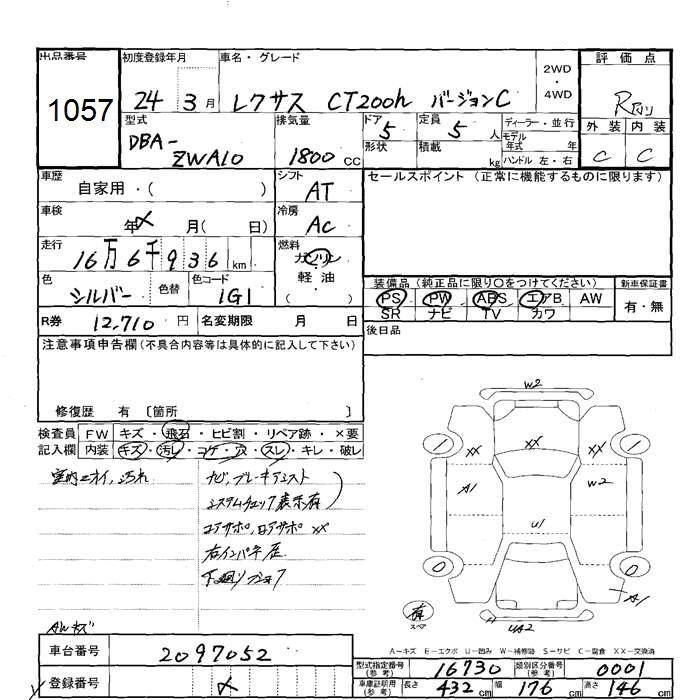 出品番号 1057
初度登録年月 24 3月
車名・グレード レクサス CT200h バージョンC
2WD ・ 4WD
評価点 R
外装 C 内装 C
型式 DBA- ZWA10
排気量 1800 CC
ドア 5 形状
定員 5 人 積載 kg
ディーラー・並行
モデル年式 年
ハンドル 左・右
車歴 自家用・( )
シフト AT
セールスポイント (正常に機能するものに限ります)
車検 年 月( 日)
冷房 AC
走行 16万6千936 km
燃料 ガソリン 軽油 ( )
色 シルバー 色替
色コード 1G1
装備品 (純正品に限り○をつけてください)
PS PW ABS エアB AW
SR ナビ TV カワ
新車保証書 有・無
R券 12,710 円
名変期限 月 日
後日品
注意事項申告欄 (不具合内容等は具体的に記入して下さい)
修復歴 有 〔箇所 〕
検査員記入欄
FW キズ・飛石・ヒビ割・リペア跡・×要
内装 キズ・汚レ・コゲ・穴・スレ・キレ・破レ
室内ニオイ、汚れ
ナビ、ブレーキアシスト
システムチェック表示有
コアサポ、ロアサポ XX
右インパネ
下廻り
W2
XX XX XX
1 1
A1 W2
U1
0 0
A1
有
スペア
UA2
A-キズ E-エクボ U-凹み W-補修跡 S-サビ C-腐食 XX-交換済
車台番号 2097052
登録番号
型式指定番号 (参考) 16730 類別区分番号 (参考) 0001
車庫証明用 (参考) 長さ 432 cm 幅 176 cm 高さ 146 cm